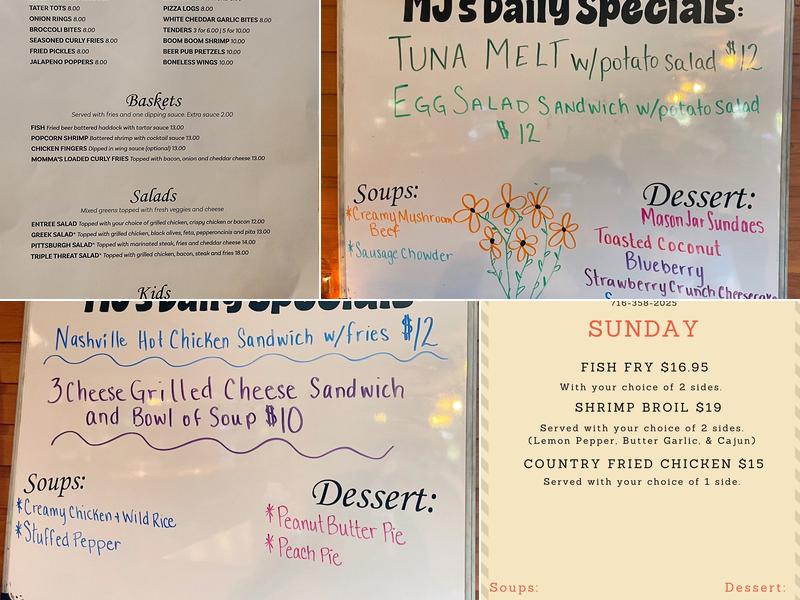 TATER TOTS 8.00
ONION RINGS 8.00
BROCCOLI BITES 8.00
SEASONED CURLY FRIES 8.00
FRIED PICKLES 8.00
JALAPENO POPPERS 8.00
PIZZA LOGS 8.00
WHITE CHEDDAR GARLIC BITES 8.00
TENDERS 3 for 6.00 | 5 for 10.00
BOOM BOOM SHRIMP 10.00
BEER PUB PRETZELS 10.00
BONELESS WINGS 10.00
Baskets
Served with fries and one dipping sauce. Extra sauce 2.00
FISH Fried beer battered haddock with tartar sauce 13.00
POPCORN SHRIMP Battered shrimp with cocktail sauce 13.00
CHICKEN FINGERS Dipped in wing sauce (optional) 13.00
MOMMA'S LOADED CURLY FRIES Topped with bacon, onion and cheddar cheese 13.00
Salads
Mixed greens topped with fresh veggies and cheese
ENTREE SALAD Topped with your choice of grilled chicken, crispy chicken or bacon 12.00
GREEK SALAD* Topped with grilled chicken, black olives, feta, pepperoncinis and pita 13.00
PITTSBURGH SALAD* Topped with marinated steak, fries and cheddar cheese 14.00
TRIPLE THREAT SALAD* Topped with grilled chicken, bacon, steak and fries 18.00
Kids
MJ's Daily Specials:
TUNA MELT w/potato salad $12
EGG SALAD SANDWICH w/potato salad
$12
Soups:
*Creamy Mushroom
Beef
*Sausage Chowder
Dessert:
Mason Jar Sundaes
Toasted Coconut
Blueberry
Strawberry Crunch Cheesecake
MJ's Daily Specials
Nashville Hot Chicken Sandwich w/fries $12
3 Cheese Grilled Cheese Sandwich
and Bowl of Soup $10
Soups:
*Creamy Chicken + Wild Rice
*Stuffed Pepper
Dessert:
*Peanut Butter Pie
*Peach Pie
716-358-2025
SUNDAY
FISH FRY $16.95
With your choice of 2 sides.
SHRIMP BROIL $19
Served with your choice of 2 sides.
(Lemon Pepper, Butter Garlic, & Cajun)
COUNTRY FRIED CHICKEN $15
Served with your choice of 1 side.
Soups:
Dessert: